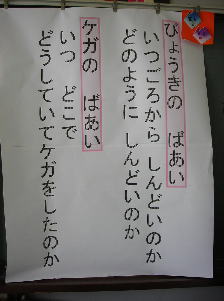 びょうきの ばあい
いつごろから しんどいのか
どのように しんどいのか
ケガの ばあい
いつ どこで
どうしていてケガをしたのか